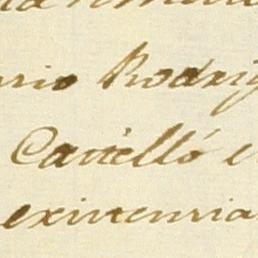 rio Rodrig
Castelló e
existencia